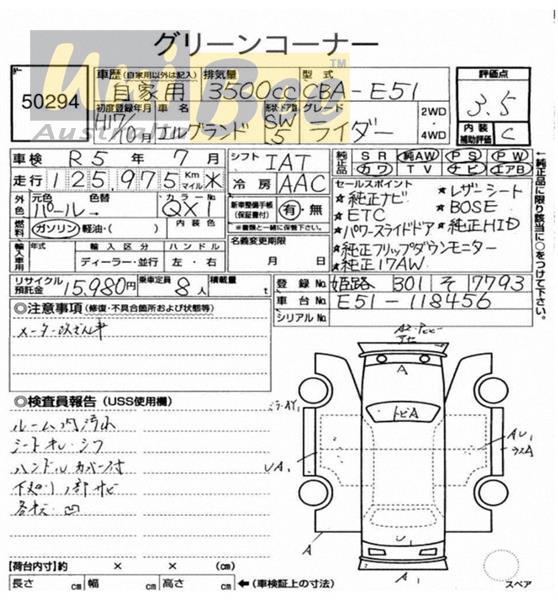 グリーンコーナー
UniBee™
Australia
50294
車歴 (自家用以外は記入) 自家用
排気量 3500cc
型式 CBA-E51
評価点 3.5
内装補助評価 C
初度登録年月 H17/10月
車名 エルグランド
形状 ドア数 SW 5
グレード ライダー
2WD
4WD
車検 R5年7月
シフト IAT
純正品 SR 純AW PS PW
カワ TV ナビ エアB
走行 125,975 Km マイル ※
冷房 AAC
外装色 元色 パール 色替 →
カラーNo QX1
内装色
燃料 ガソリン 軽油・( )
新車整備手帳 (保証書付) 有・無
※書類と一緒に保管下さい。
名義変更期限 月 日
輸入車用 年式 輸入区分 ハンドル
ディーラー・並行 左・右
リサイクル預託金 15,980円
乗車定員 8人
積載量 t
セールスポイント
★純正ナビ
★ETC
★パワースライドドア
★純正フリップダウンモニター
★純正17AW
★レザーシート
★BOSE
★純正HID
純正品に限り該当に○をつけて下さい。
登録No 姫路 301 そ 7793
車台No E51-118456
シリアルNo
◎注意事項 (修復・不具合箇所および状態等)
◎検査員報告 (USS使用欄)
ルーム内汚れ
ハンドルカバー付
下廻り1部サビ
各板凹
A
トビA
UA1
AU1
A
U1
A1
A
スペア
【荷台内寸】約 × × (cm)
長さ cm 幅 cm 高さ cm ←(車検証上の寸法)